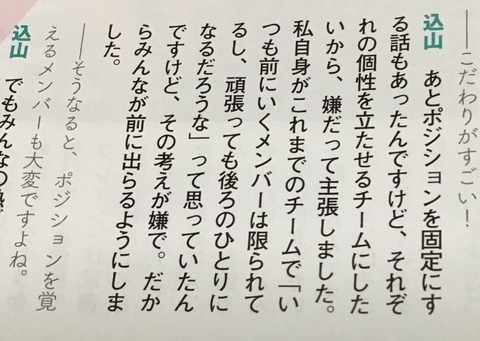 ――こだわりがすごい！
込山　あとポジションを固定にす
る話もあったんですけど、それぞ
れの個性を立たせるチームにした
いから、嫌だって主張しました。
私自身がこれまでのチームで「い
つも前にいくメンバーは限られて
るし、頑張っても後ろのひとりに
なるだろうな」って思っていたん
ですけど、その考えが嫌で。だか
らみんなが前に出らるようにしま
した。
――そうなると、ポジションを覚
えるメンバーも大変ですよね。
込山　でもみんなの熱